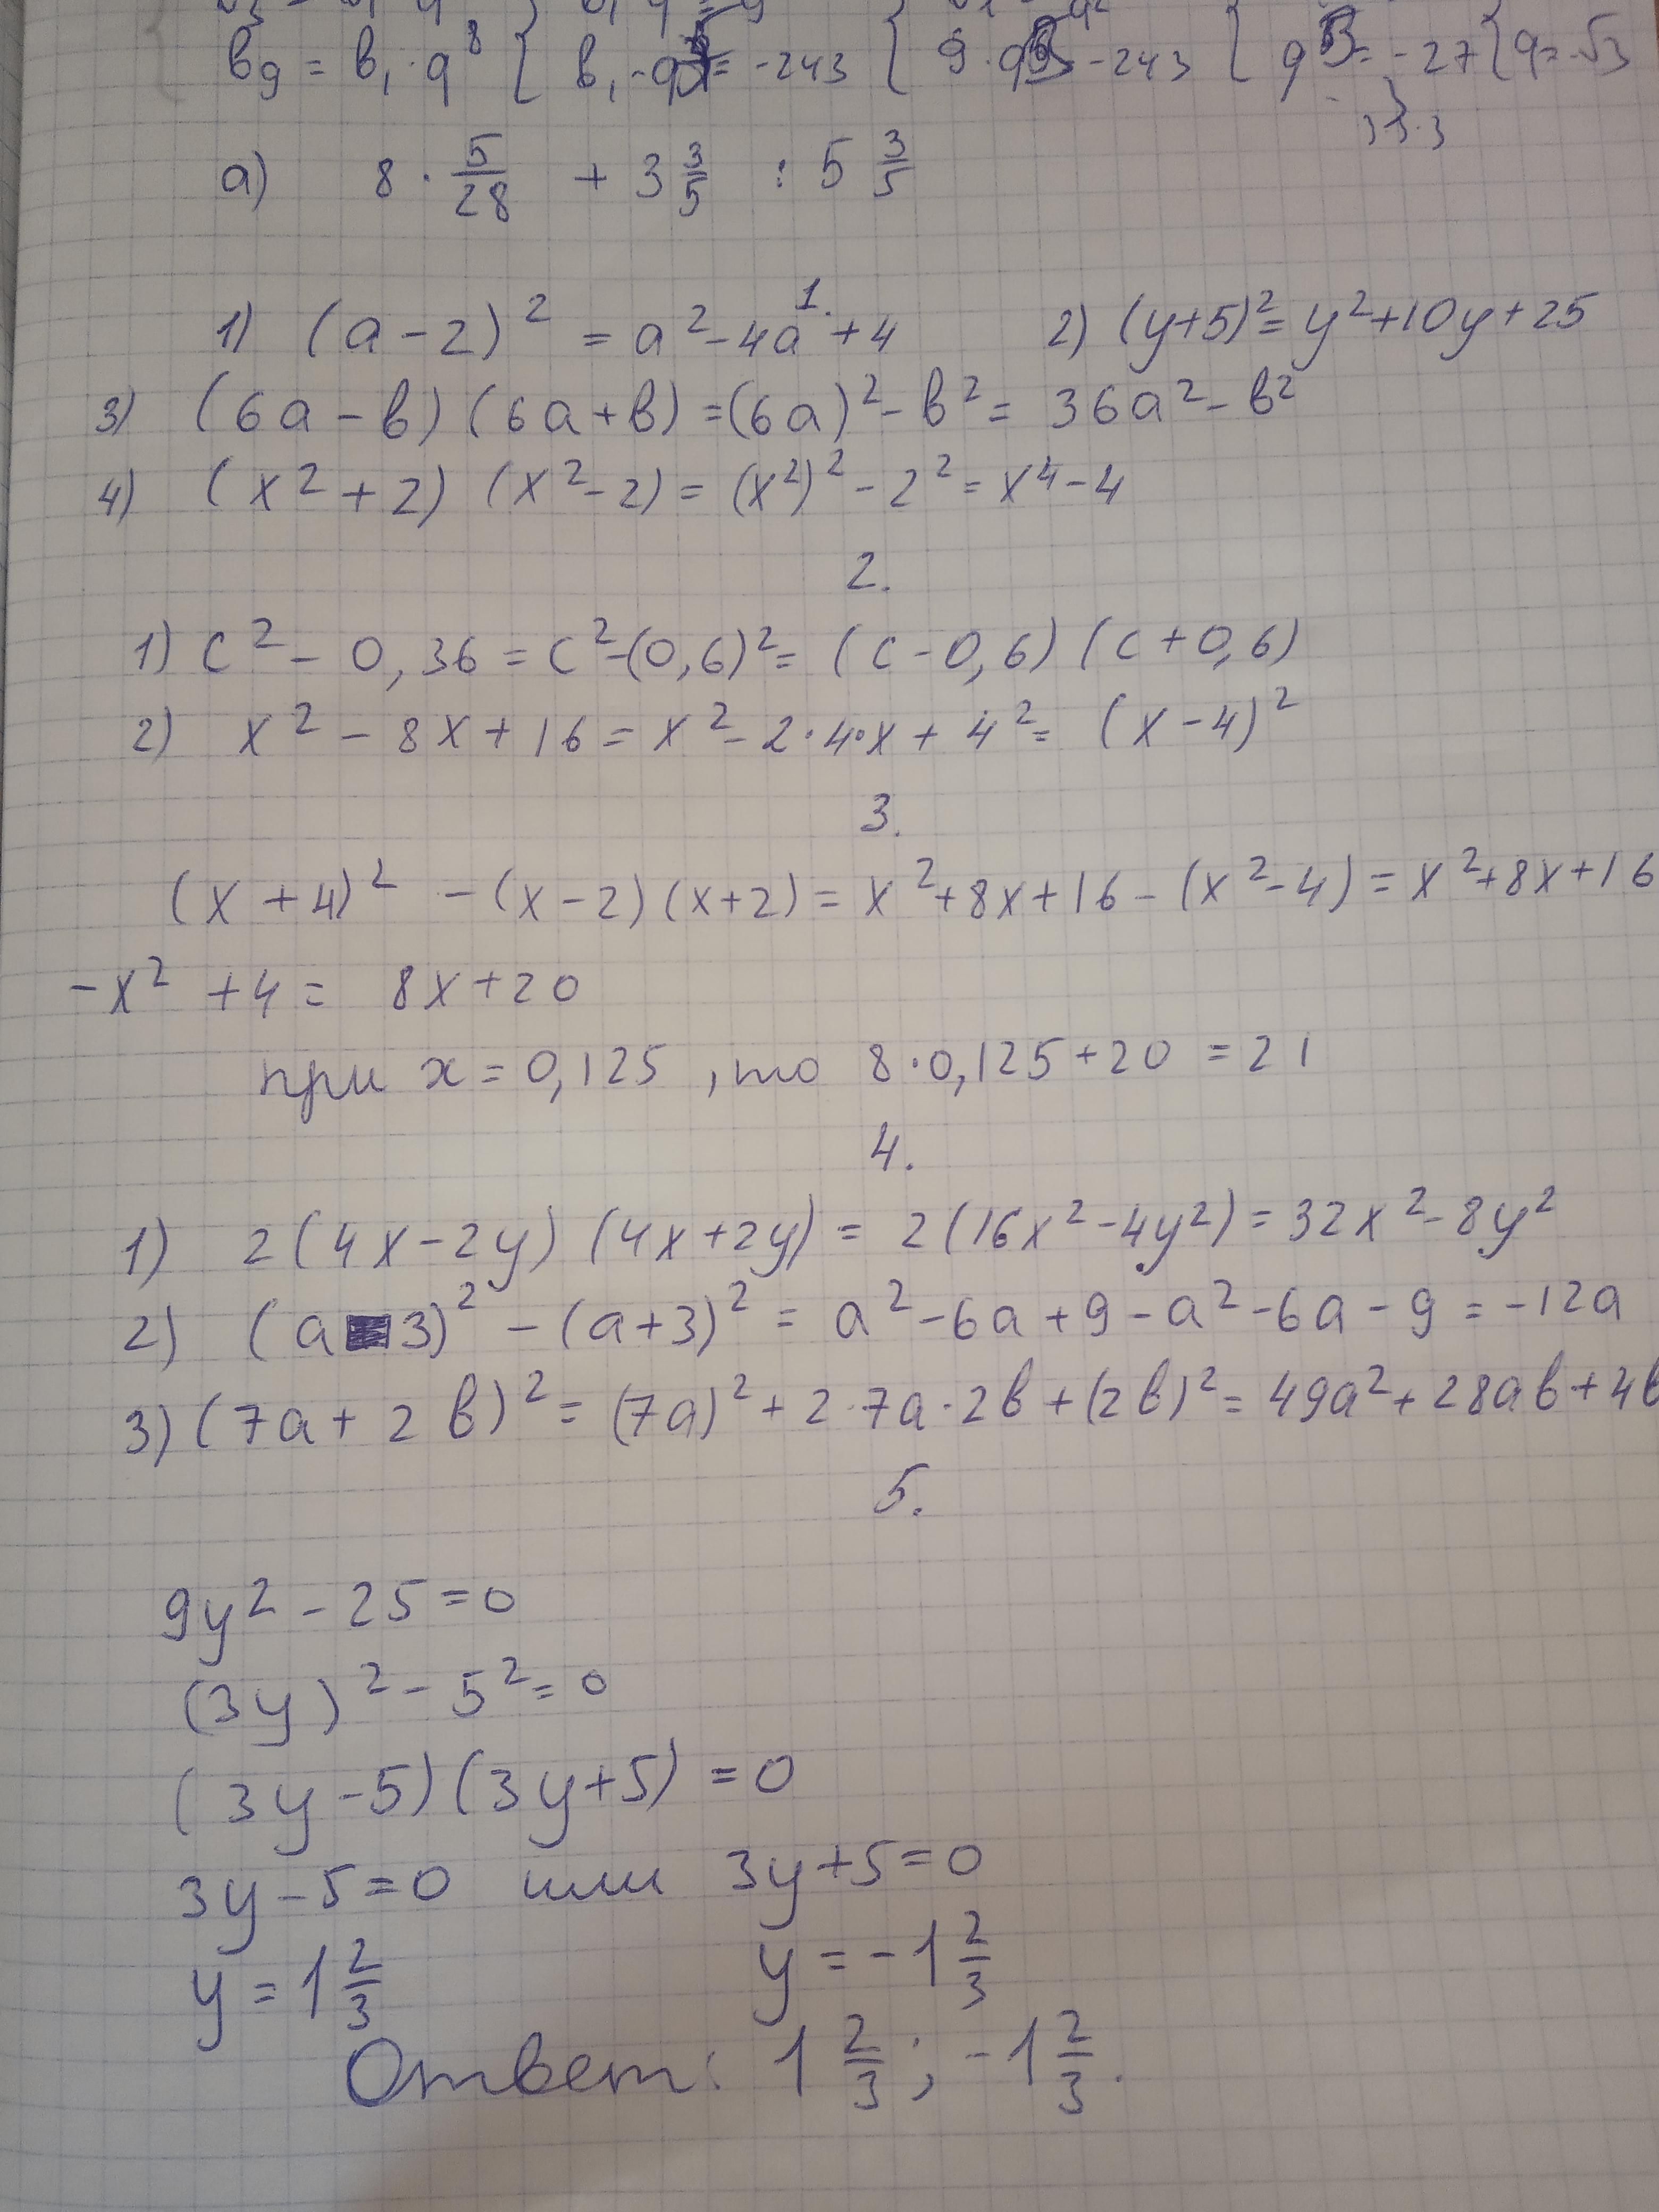 b₉ = b₁ · q⁸ { b₁ · q = -243 { 9 · q = -243 { q = -27 { q = -√3
а) 8 · 5/28 + 3 3/5 : 5 3/5
1.
1) (a - 2)² = a² - 4a + 4 2) (y+5)² = y² + 10y + 25
3) (6a - b) (6a + b) = (6a)² - b² = 36a² - b²
4) (x² + 2) (x² - 2) = (x²)² - 2² = x⁴ - 4
2.
1) c² - 0,36 = c² - (0,6)² = (c - 0,6) (c + 0,6)
2) x² - 8x + 16 = x² - 2·4·x + 4² = (x - 4)²
3.
(x + 4)² - (x - 2) (x + 2) = x² + 8x + 16 - (x² - 4) = x² + 8x + 16
- x² + 4 = 8x + 20
при x = 0,125 , то 8 · 0,125 + 20 = 21
4.
1) 2 (4x - 2y) (4x + 2y) = 2 (16x² - 4y²) = 32x² - 8y²
2) (a - 3)² - (a + 3)² = a² - 6a + 9 - a² - 6a - 9 = -12a
3) (7a + 2b)² = (7a)² + 2 · 7a · 2b + (2b)² = 49a² + 28ab + 4b
5.
9y² - 25 = 0
(3y)² - 5² = 0
(3y - 5) (3y + 5) = 0
3y - 5 = 0 или 3y + 5 = 0
y = 1 2/3 y = -1 2/3
Ответ: 1 2/3 ; -1 2/3 .